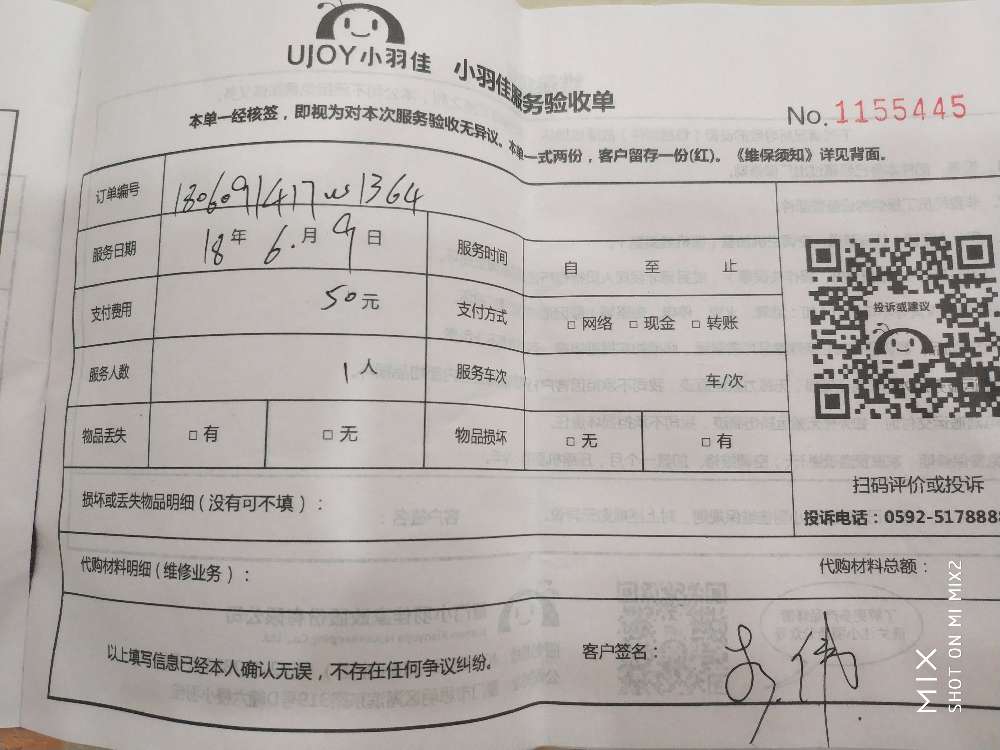 UJOY小羽佳 小羽佳服务验收单
本单一经核签，即视为对本次服务验收无异议。本单一式两份，客户留存一份(红)。《维保须知》详见背面。
No. 1155445
订单编号 1806091417ws1364
服务日期 18年 6.月 9日 服务时间 自 至 止
支付费用 50元 支付方式 □网络 □现金 □转账
服务人数 1人 服务车次 车/次
物品丢失 □有 □无 物品损坏 □无 □有
投诉或建议
扫码评价或投诉
投诉电话：0592-5178888
损坏或丢失物品明细（没有可不填）：
代购材料明细（维修业务）： 代购材料总额：
以上填写信息已经本人确认无误，不存在任何争议纠纷。 客户签名：
MIX
SHOT ON MI MIX2